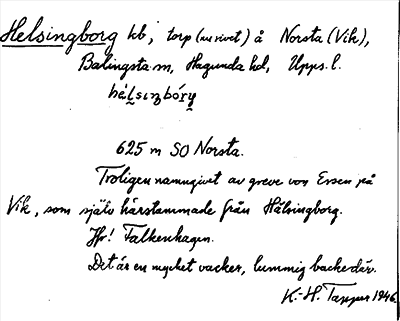 Helsingborg kb, torp (nu rivet) å Norsta (Vik),
Balingsta sn, Hagunda hd, Upps. l.
hélsɩŋbóry
625 m SO Norsta.
Troligen namngivet av greve von Essen på
Vik, som själv härstammade från Hälsingborg.
Jfr! Falkenhagen.
Det är en mycket vacker, lummig backe där.
K.-H. Tapper 1946.